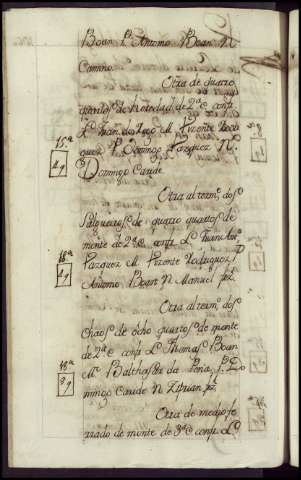 Boan P. Antonio Boan N.
Camino.
Otra de quatro
quartos de hortadad de 2ª. confi.
L. Juan do Lago M. Vizente Rodri
guez P. Domingo Vazquez N.
Domingo Caride.
15ª
4 q
Otra al termº. dos
Salgueiros de quatro quartos de
monte de 2ª. confi. L. Juan Anº.
Vazquez M. Vizente Rodriguez P.
Antonio Boan N. Manuel frz.
16ª
4 q
Otra al termº. dos
Chaos de ocho quartos de monte
de 2ª. confi. L. Thomas Boan
M. Balthasar da Pena P. Do
mingo Caride N. Ziprian frz.
18ª
8 q
Otra de medio fe
rrado de monte de 3ª. confi. L.